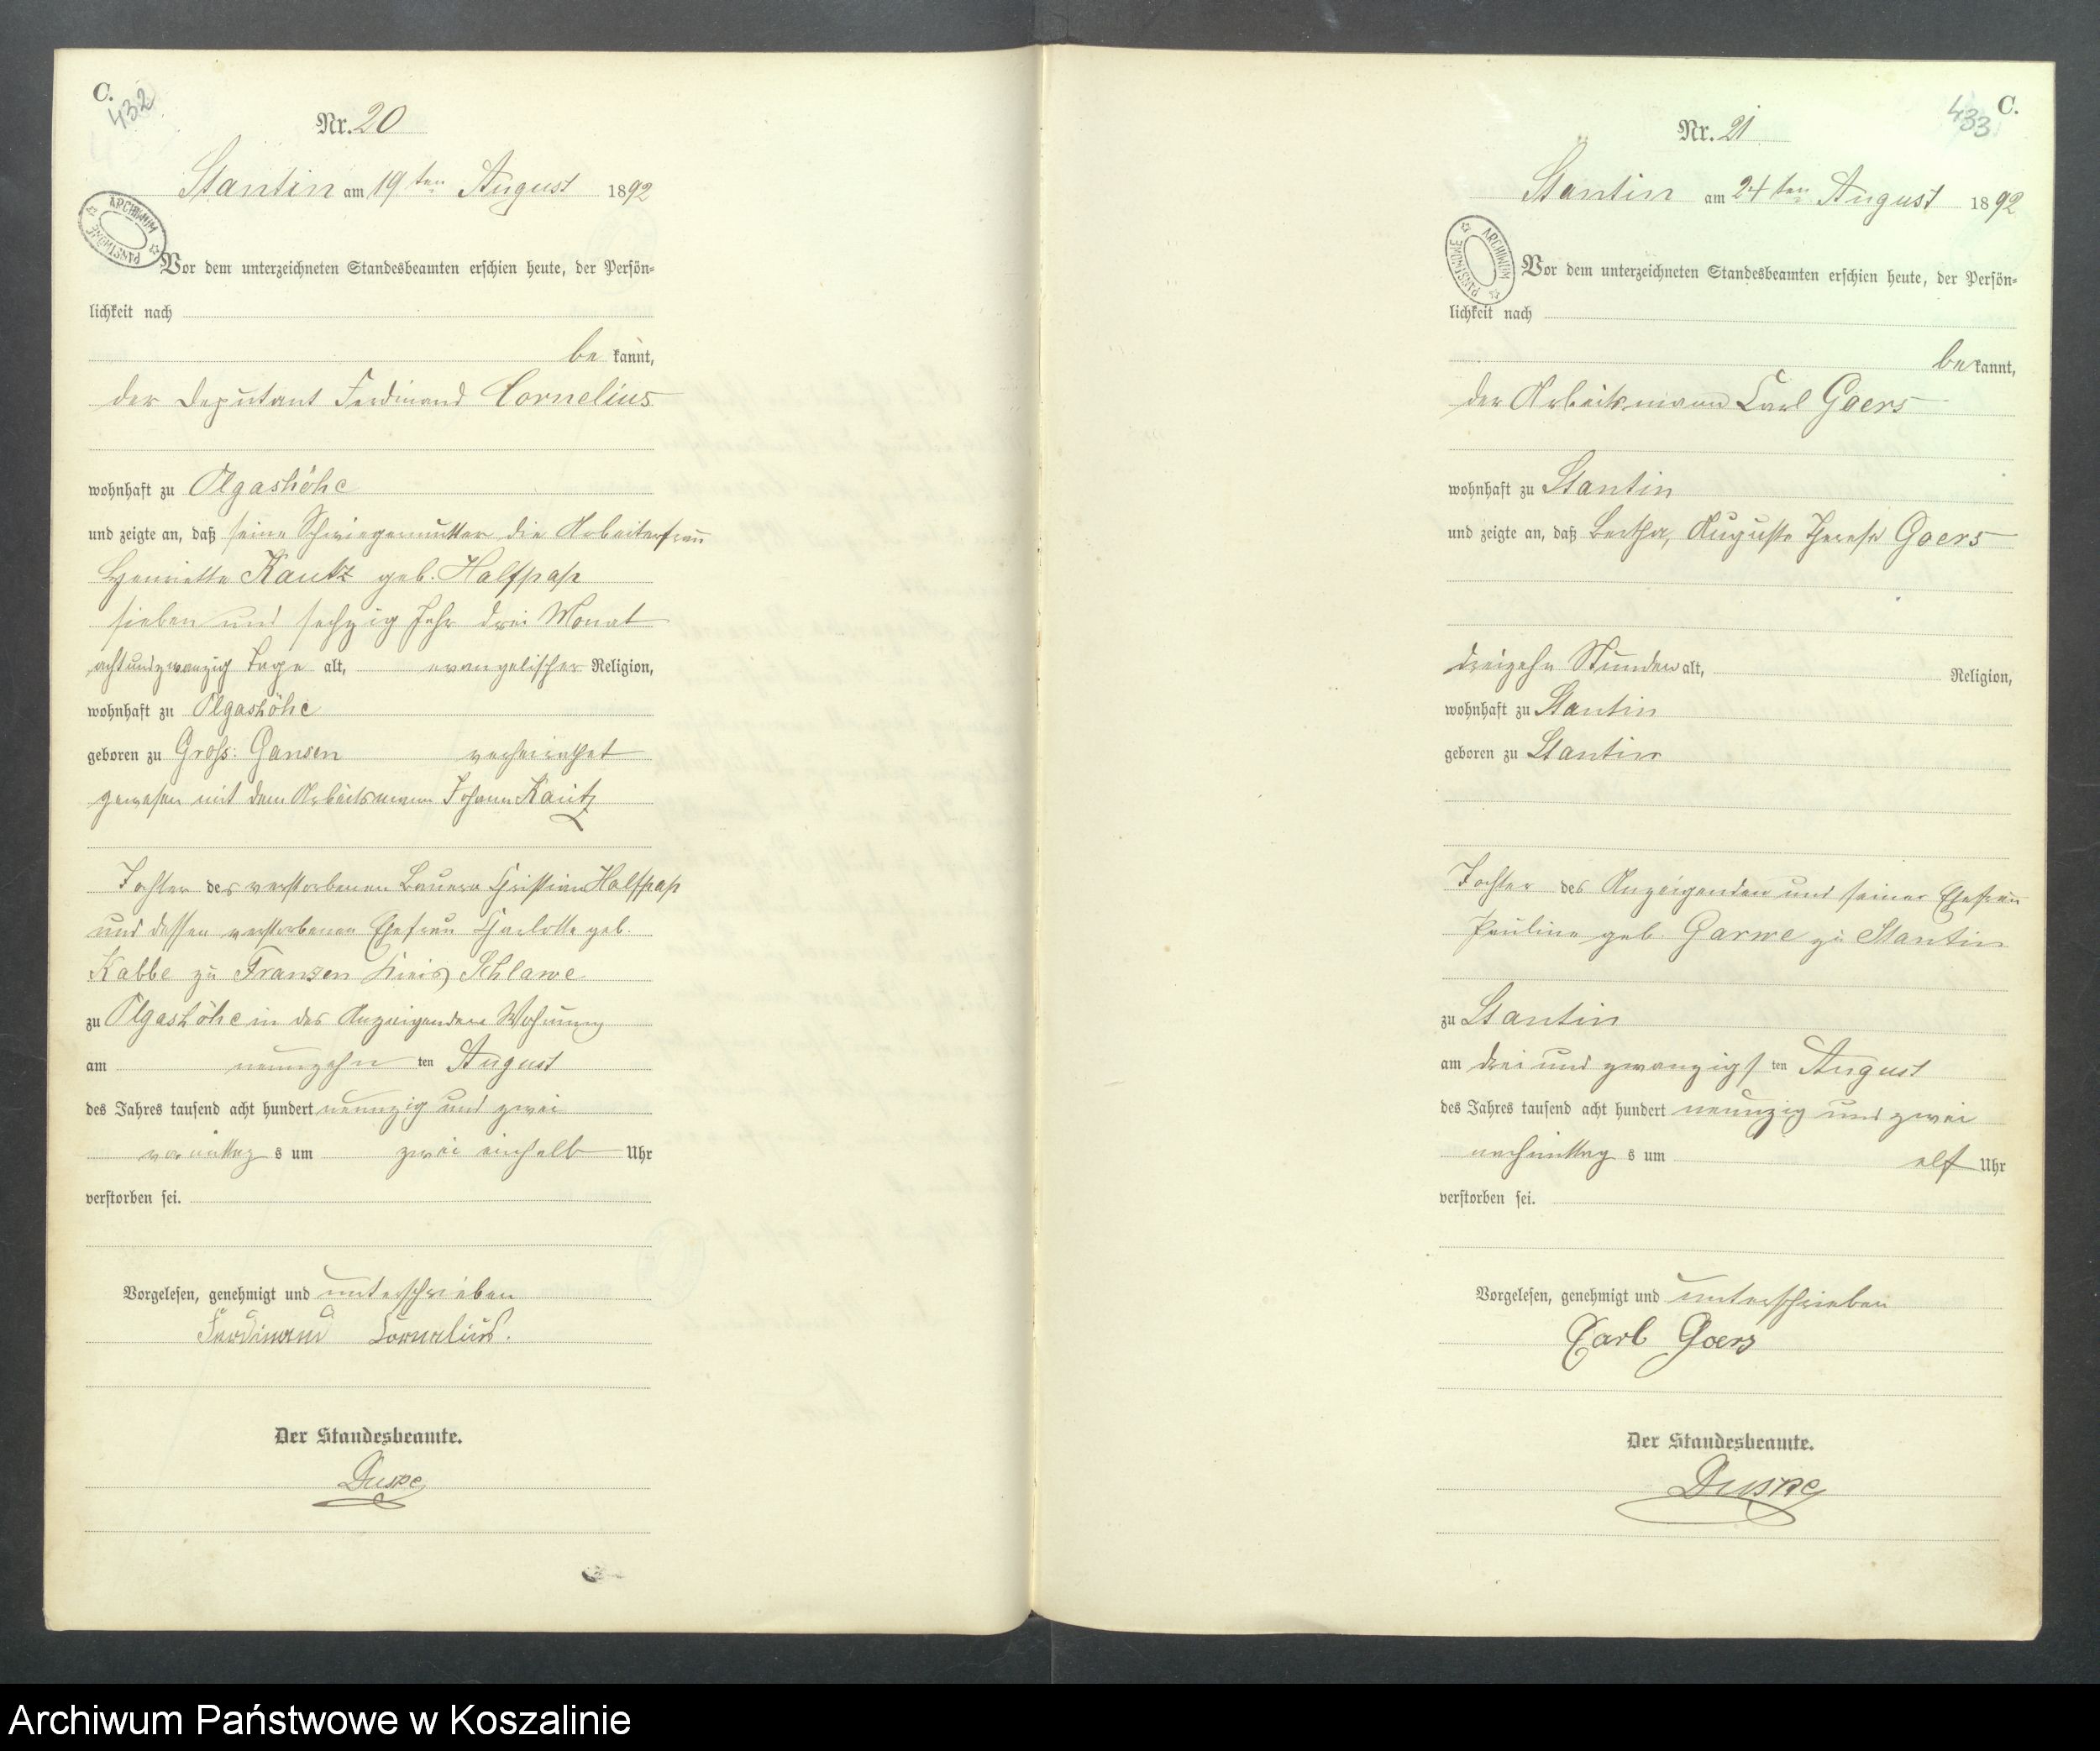 C.
432
Nr. 20
Stantin am 19ten August 1892
ARCHIWUM PAŃSTWOWE
Vor dem unterzeichneten Standesbeamten erschien heute, der Persön-
lichkeit nach
be kannt,
der Deputant Ferdinand Cornelius
wohnhaft zu Olgashöhe
und zeigte an, daß seine Schwiegermutter die Arbeiterfrau
Henriette Kautz geb. Halfpap
sieben und sechzig Jahr drei Monat
achtundzwanzig Tage alt, evangelischer Religion,
wohnhaft zu Olgashöhe
geboren zu Groß: Gansen verheirathet
gewesen mit dem Arbeitsmann Johann Kautz
Tochter des verstorbenen Bauern Christian Halfpap
und dessen verstorbenen Ehefrau Charlotte geb.
Kabbe zu Franzen Kreis Schlawe
zu Olgashöhe in des Anzeigenden Wohnung
am neunzehn ten August
des Jahres tausend acht hundert neunzig und zwei
vormittag s um zwei einhalb Uhr
verstorben sei.
Vorgelesen, genehmigt und unterschrieben
Ferdinand Cornelius.
Der Standesbeamte.
Duske
433
C.
Nr. 21
Stantin am 24ten August 1892
ARCHIWUM PAŃSTWOWE
Vor dem unterzeichneten Standesbeamten erschien heute, der Persön-
lichkeit nach
be kannt,
der Arbeitsmann Carl Goers
wohnhaft zu Stantin
und zeigte an, daß Bertha, Auguste Therese Goers
dreizehn Stunden alt, Religion,
wohnhaft zu Stantin
geboren zu Stantin
Tochter des Anzeigenden und seiner Ehefrau
Pauline geb. Garwe zu Stantin
zu Stantin
am drei und zwanzigs ten August
des Jahres tausend acht hundert neunzig und zwei
nachmittag s um elf Uhr
verstorben sei.
Vorgelesen, genehmigt und unterschrieben
Carl Goers
Der Standesbeamte.
Duske
Archiwum Państwowe w Koszalinie